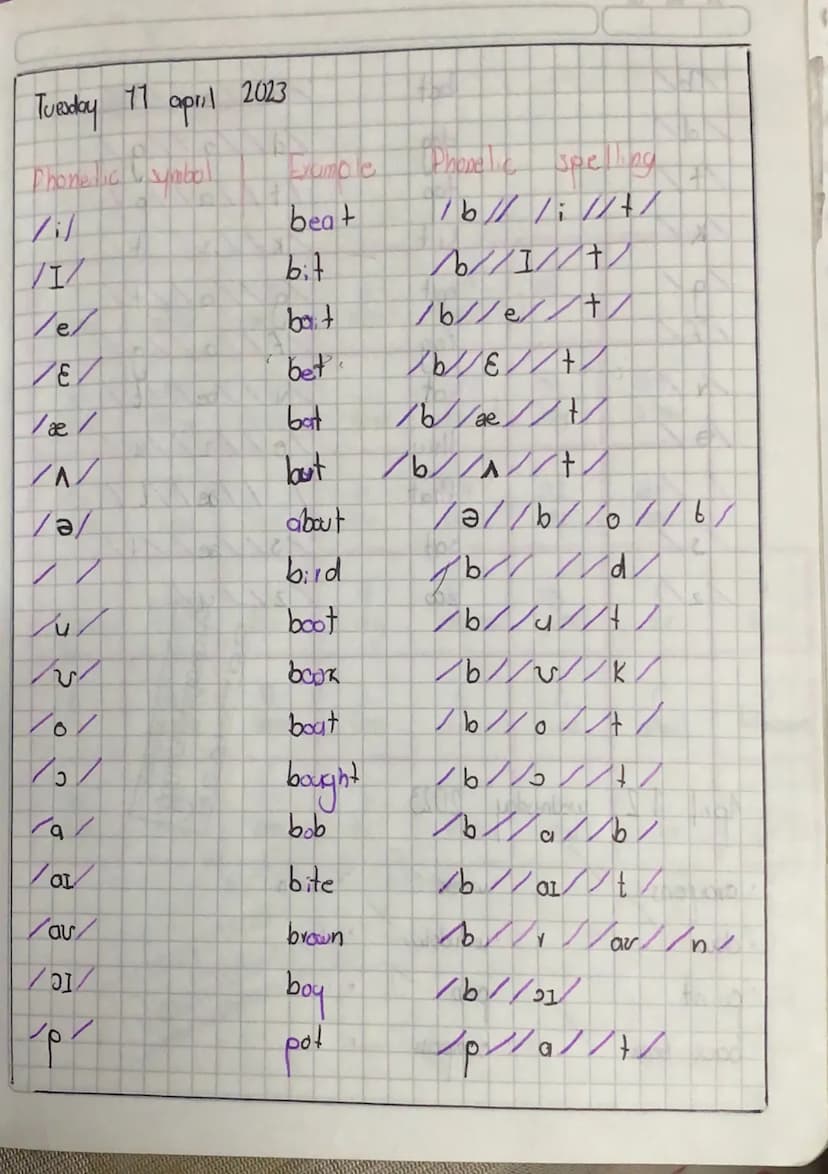 Tuesday 11 april 2023
Phonetic symbol Example Phonetic spelling
/i/ beat /b// /i//t/
/I/ bit /b//I//t/
/e/ bait /b//e//t/
/Ɛ/ bet /b//Ɛ//t/
/æ/ bat /b//æ//t/
/ʌ/ but /b//ʌ//t/
/ə/ about /ə//b//o//t/
/ / bird /b// //d/
/u/ boot /b//u//t/
/ʊ/ book /b//ʊ//k/
/o/ boat /b//o//t/
/ɔ/ bought /b//ɔ//t/
/a/ bob /b//a//b/
/aɪ/ bite /b//aɪ//t/
/aʊ/ brown /b//r//aʊ//n/
/ɔI/ boy /b//ɔI/
/p/ pot /p//a//t/